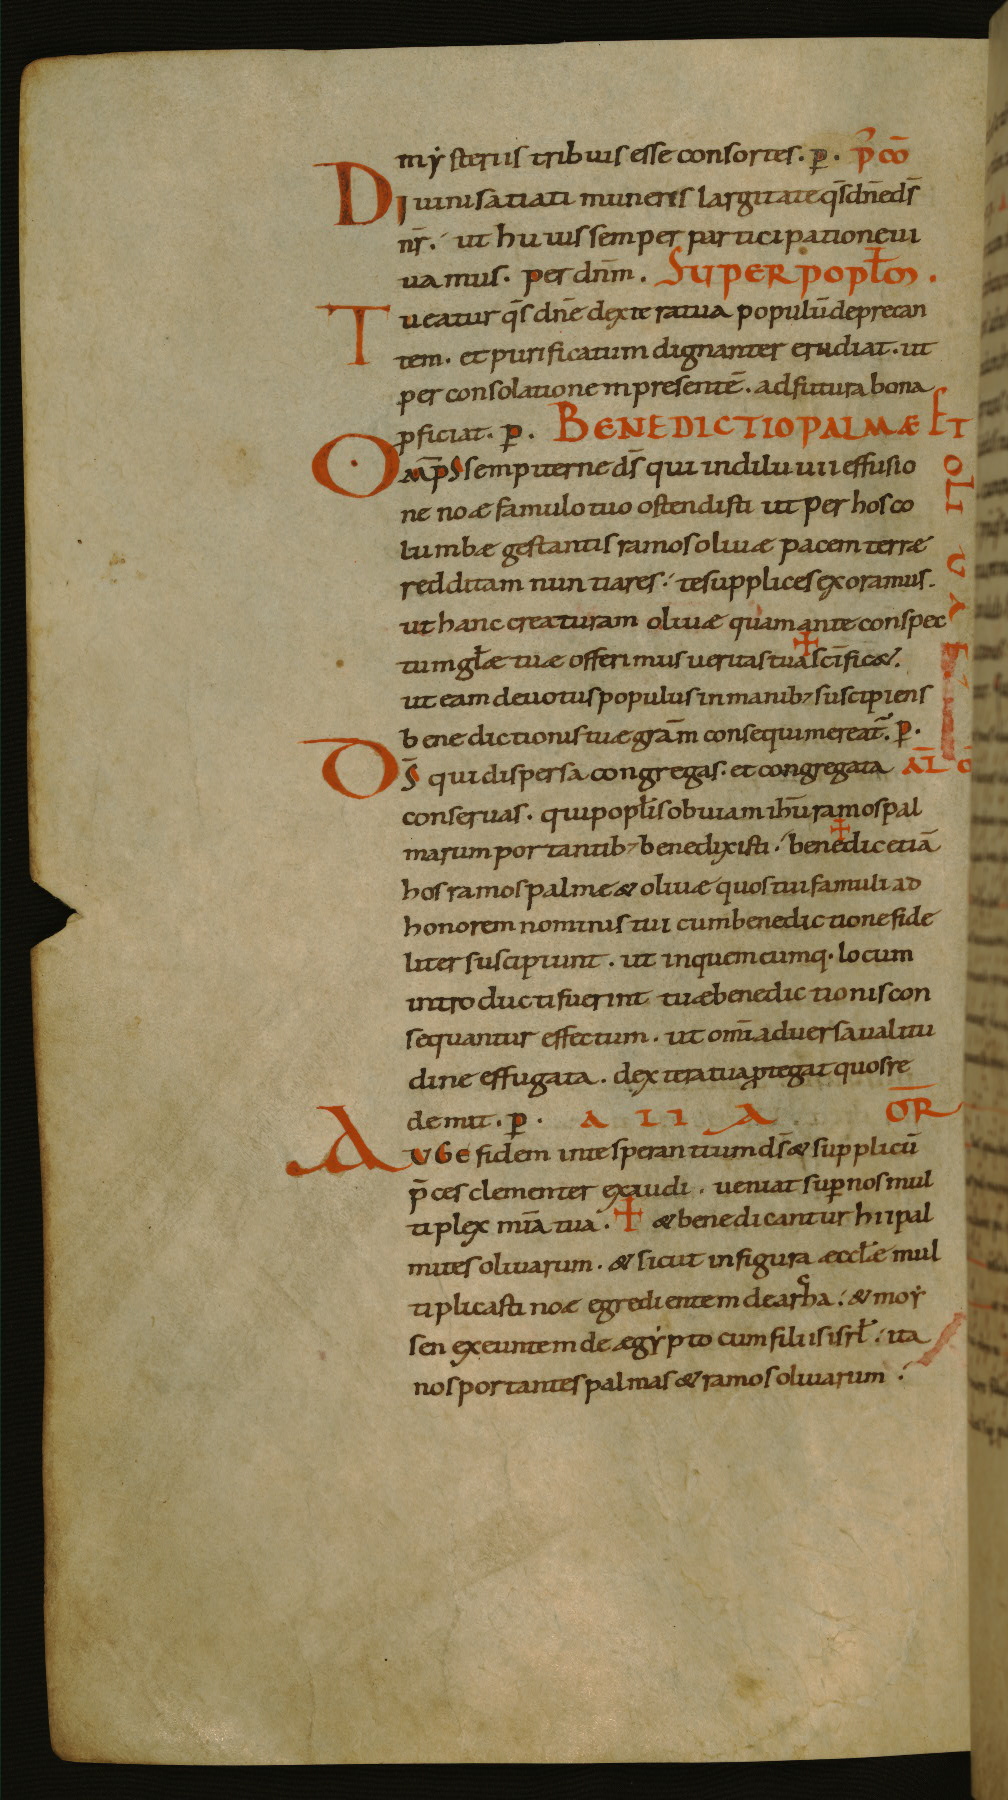 mẏsteriis tribuis esse consortes. p̱. p̄ cō
Diuini satiati muneris largitate q̄s dn̄e ds̄
nr̄. ut huuis semper participatione ui
uamus. per dn̄m. Super popłm.
Tueatur q̄s dn̄e dextera tua populū deprecan
tem. et purificatum dignanter erudiat. ut
per consolationem presentē. ad futura bona
pficiat. p̱. Benedictio palmæ Et
oli
v
a
Omps̄ sempiterne ds̄ qui in diluuii effusio
ne noæ famulo tuo ostendisti ut per hos co
lumbæ gestantis ramos oliuæ pacem terræ
redditam nuntiares. te supplices exoramus.
ut hanc creaturam oliuæ quam ante conspec
tum głæ tuæ offerimus ueritas tua ✝ sc̄ificæ.
ut eam deuotus populus in manib; suscipiens
benedictionis tuæ grām consequi mereat̄. p̱.
Ds̄ qui dispersa congregas. et congregata al̄
conseruas. qui popłis obuiam ihū ramos pal
marum portantib; benedixisti. ✝ benedic etiā
hos ramos palme & oliuæ quos tui famuli ad
honorem nominis tui cum benedictione fide
liter suscipiunt. ut in quemcumq. locum
introducti fuerint tuæ benedictionis con
sequantur effectum. ut om̄i aduersa ualitu
dine effugata. dextera tua ptegat quos re
demit. p̱. A l i a ōr
Auge fidem in te sperantium ds̄ & supplicū
p̄ces clementer exaudi. ueniat sup nos mul
tiplex mīa tua. ✝ & benedicantur hii pal
mites oliuarum. & sicut in figura æccłe mul
tiplicasti noæ egredientem de archa. & moẏ
sen exeuntem de ægẏpto cum filiis isrł. ita
nos portantes palmas & ramos oliuarum.